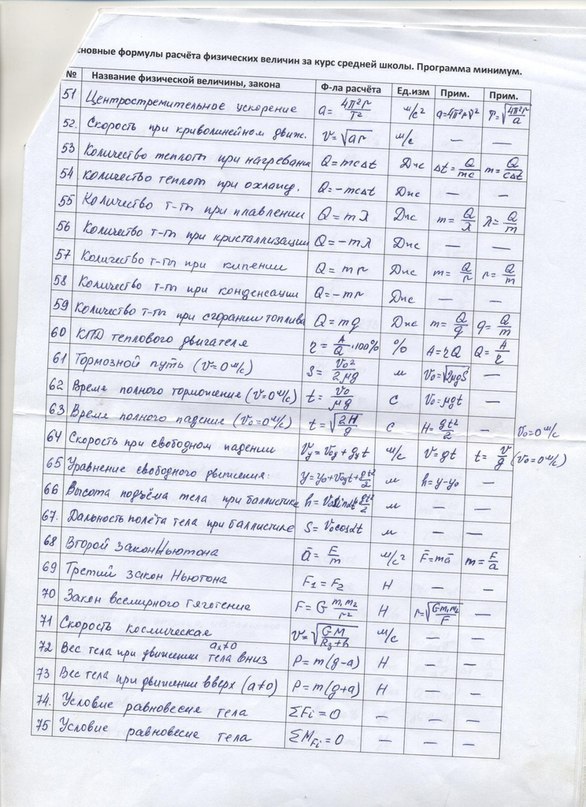 сновные формулы расчёта физических величин за курс средней школы. Программа минимум.
№ Название физической величины, закона Ф-ла расчёта Ед.изм Прим. Прим.
51 Центростремительное ускорение a = 4π²r/T² м/с² a=4π²rν² T=√(4π²r/a)
52. Скорость при криволинейном движ. v=√ar м/с — —
53 Количество теплоты при нагревани Q = mcΔt Дж Δt = Q/mc m = Q/cΔt
54 количество теплоты при охлажд. Q = -mcΔt Дж — —
55 Количество т-ты при плавлении Q = mλ Дж m = Q/λ λ = Q/m
56 Количество т-ты при кристаллизации Q = -mλ Дж — —
57 Количество т-ты при кипении Q = mr Дж m = Q/r r = Q/m
58 Количество т-ты при конденсации Q = -mr Дж — —
59 Количество т-ты при сгорании топлива Q = mq Дж m = Q/q q = Q/m
60 КПД теплового двигателя η = A/Q·100% % A = ηQ Q = A/η
61 Тормозной путь (v=0 м/с) S = v₀²/2μg м v₀=√2μgS —
62 Время полного торможения (v=0 м/с) t = v₀/μg с v₀ = μgt —
63 Время полного падение (v₀=0 м/с) t = √(2H/g) с H = gt²/2 — v₀=0 м/с
64 Скорость при свободном падении vy = v₀y + gyt м/с v = gt t = v/g (v₀=0 м/с)
65 Уравнение свободного движения. y=y₀+v₀yt+gt²/2 м h=y-y₀ —
66 Высота подъёма тела при баллистике h=v₀sinαt+gt²/2 м — —
67. Дальность полёта тела при баллистике S=v₀cosαt м — —
68 Второй закон Ньютона a̅ = F̅/m м/с² F̅=ma̅ m = F/a
69 Третий закон Ньютона F₁ = F₂ Н — —
70 Закон всемирного тяготения F = G m₁m₂/r² Н r=√(Gm₁m₂/F) —
71 Скорость космическая v=√(GM/(Rз+h)) м/с — —
72 Вес тела при движении тела вниз a≠0 P = m(g-a) Н — —
73 Вес тела при движении вверх (a≠0) P = m(g+a) Н — —
74. Условие равновесия тела ΣFi = 0 — — —
75 Условие равновесие тела ΣMFi = 0 — — —